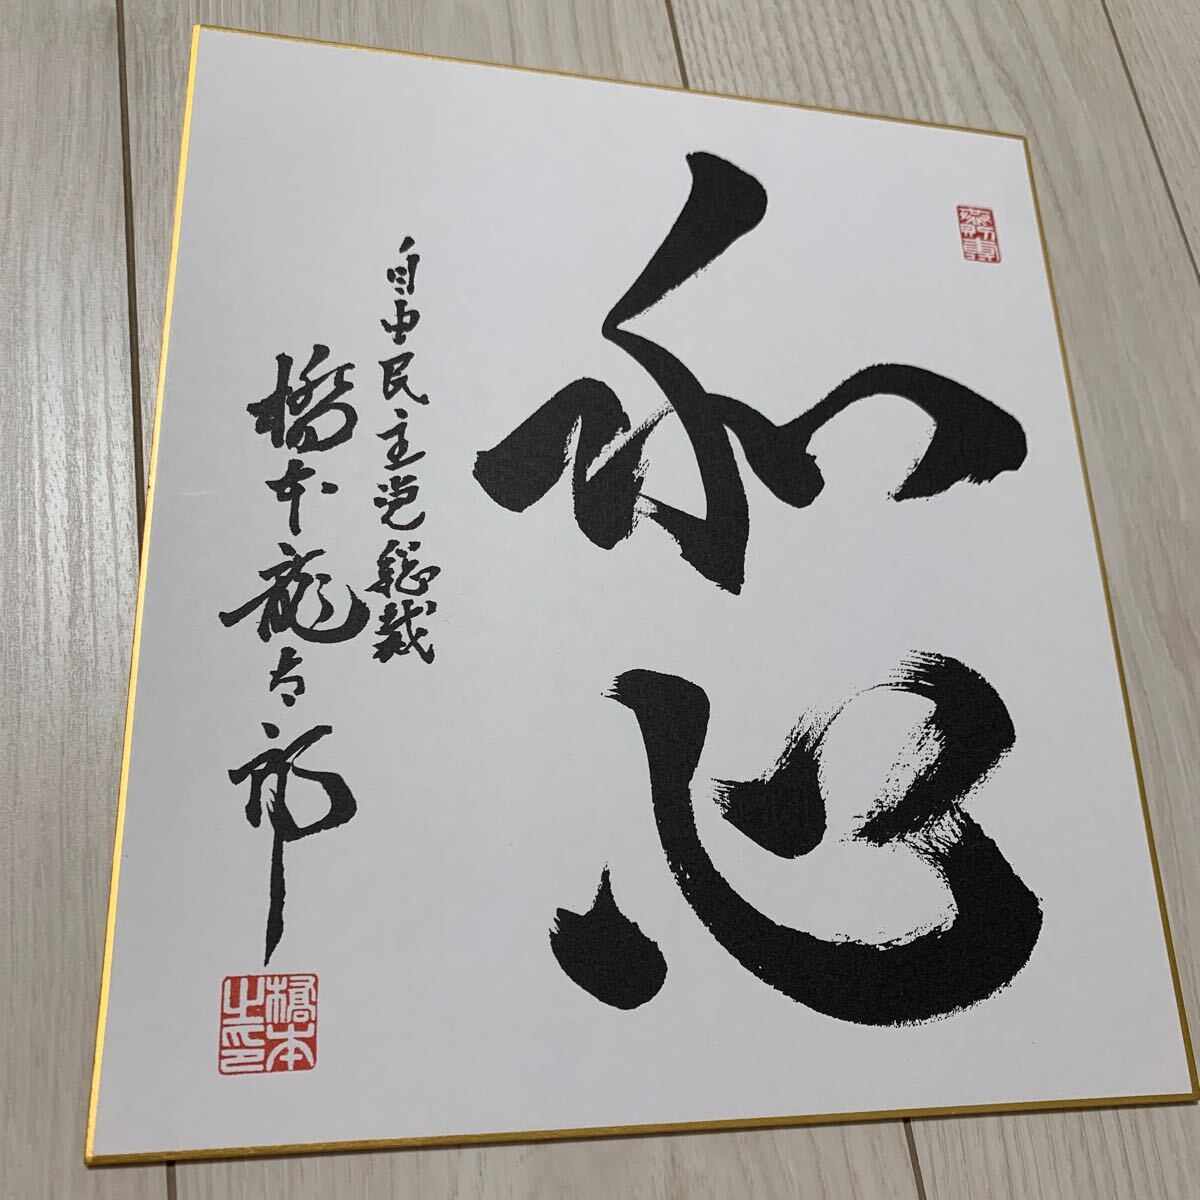 和心
自由民主党総裁
橋本龍太郎
橋本之印